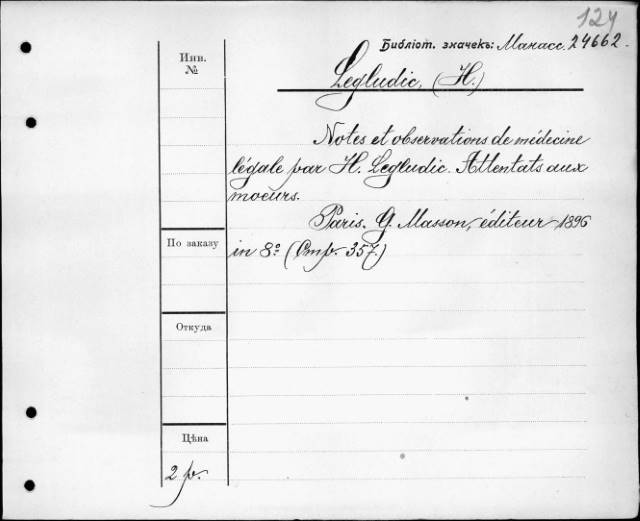 124
Библіот. значекъ: Манасс. 24662.
Инв.
№
Legludic, (H.)
Notes et observations de médecine
légale par H. Legludic. Attentats aux
moeurs.
Paris. G. Masson, éditeur 1896
По заказу
in 8º (Стр. 357.)
Откуда
Цѣна
2 р.